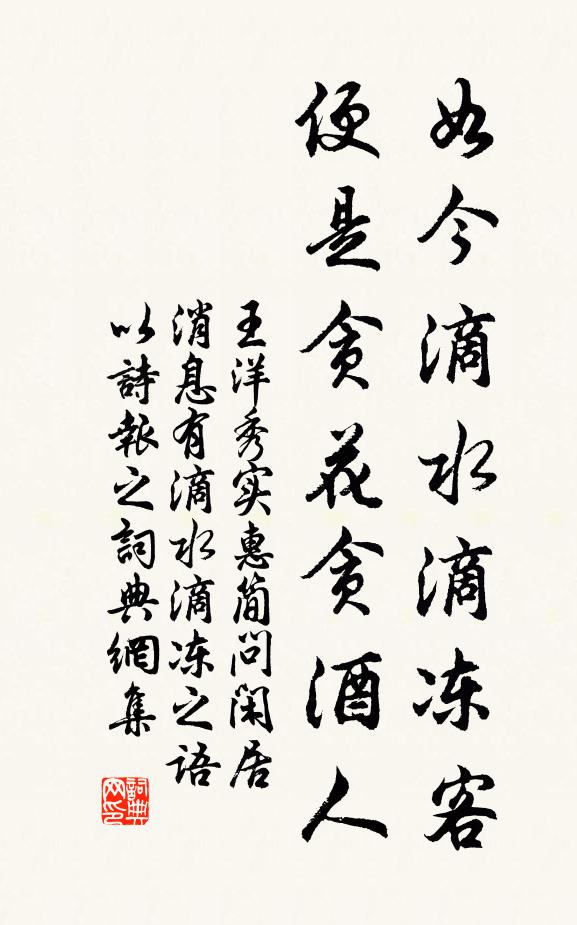 如今滴水滴冻客
便是贪花贪酒人
王洋秀实惠简问闲居
消息有滴水滴冻之语
以詩報之詞典網集
詞典
网印